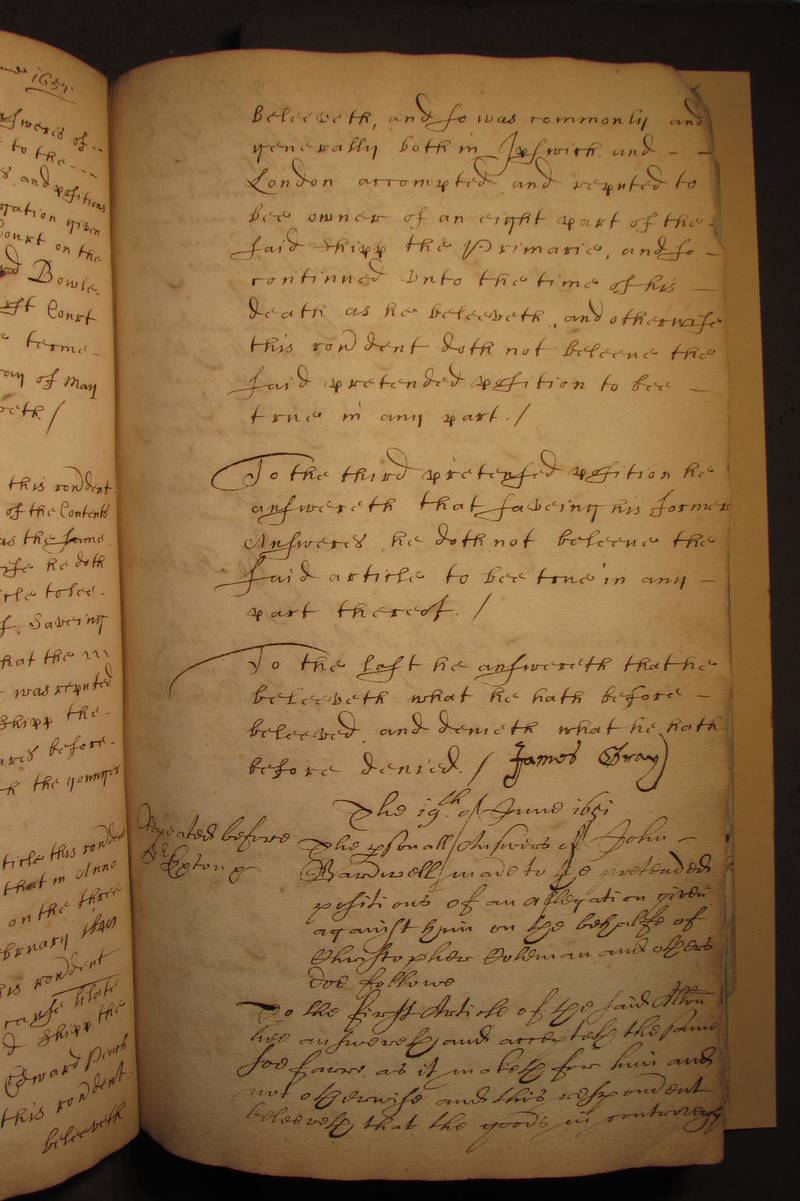 1651
Answeres of
to the
and positions
gation given
Court on the
Bowle
Court
terme
day of May
this rondent
of the Contents
as the same
he doth
to bee
Saveing
that the
was reputed
Shipp the
before
the younger
this rondent
that in Anno
on the three
bruary 1640
this rondent
Shipp the
Edward Peach
this rondent
beleeveth
beleeveth, and so was commonly and
generally both in Ipswich and - -
London accompted and reputed to
bee owner of an eight part of the
said shipp the Primarie, and so -
continued vnto the time of his -
death as he beleeveth, and otherwise
this rondent doth not beleeve the
said pretended position to bee -
true in any part. /
To the third pretensed position he
answereth that saveing his former
Answeres he doth not beleeve the
said article to bee true in any -
part thereof. /
To the last he answereth that he
beleeveth what he hath before -
beleeved and denieth what he hath
before denied. / James Gray
The 19th. of June 1651
Repeated before
Dr Exton
The psonall Answers of John -
Bardwell made to the pretended
positions of an allegation given
against him on the behalfe of
Christopher Coleman and others
doe followe
To the first Article of the said Allon
hee answereth and accepteth the same
soe farre as it maketh for him and
not otherwise and this respondent
beleeveth that the goods in controversy